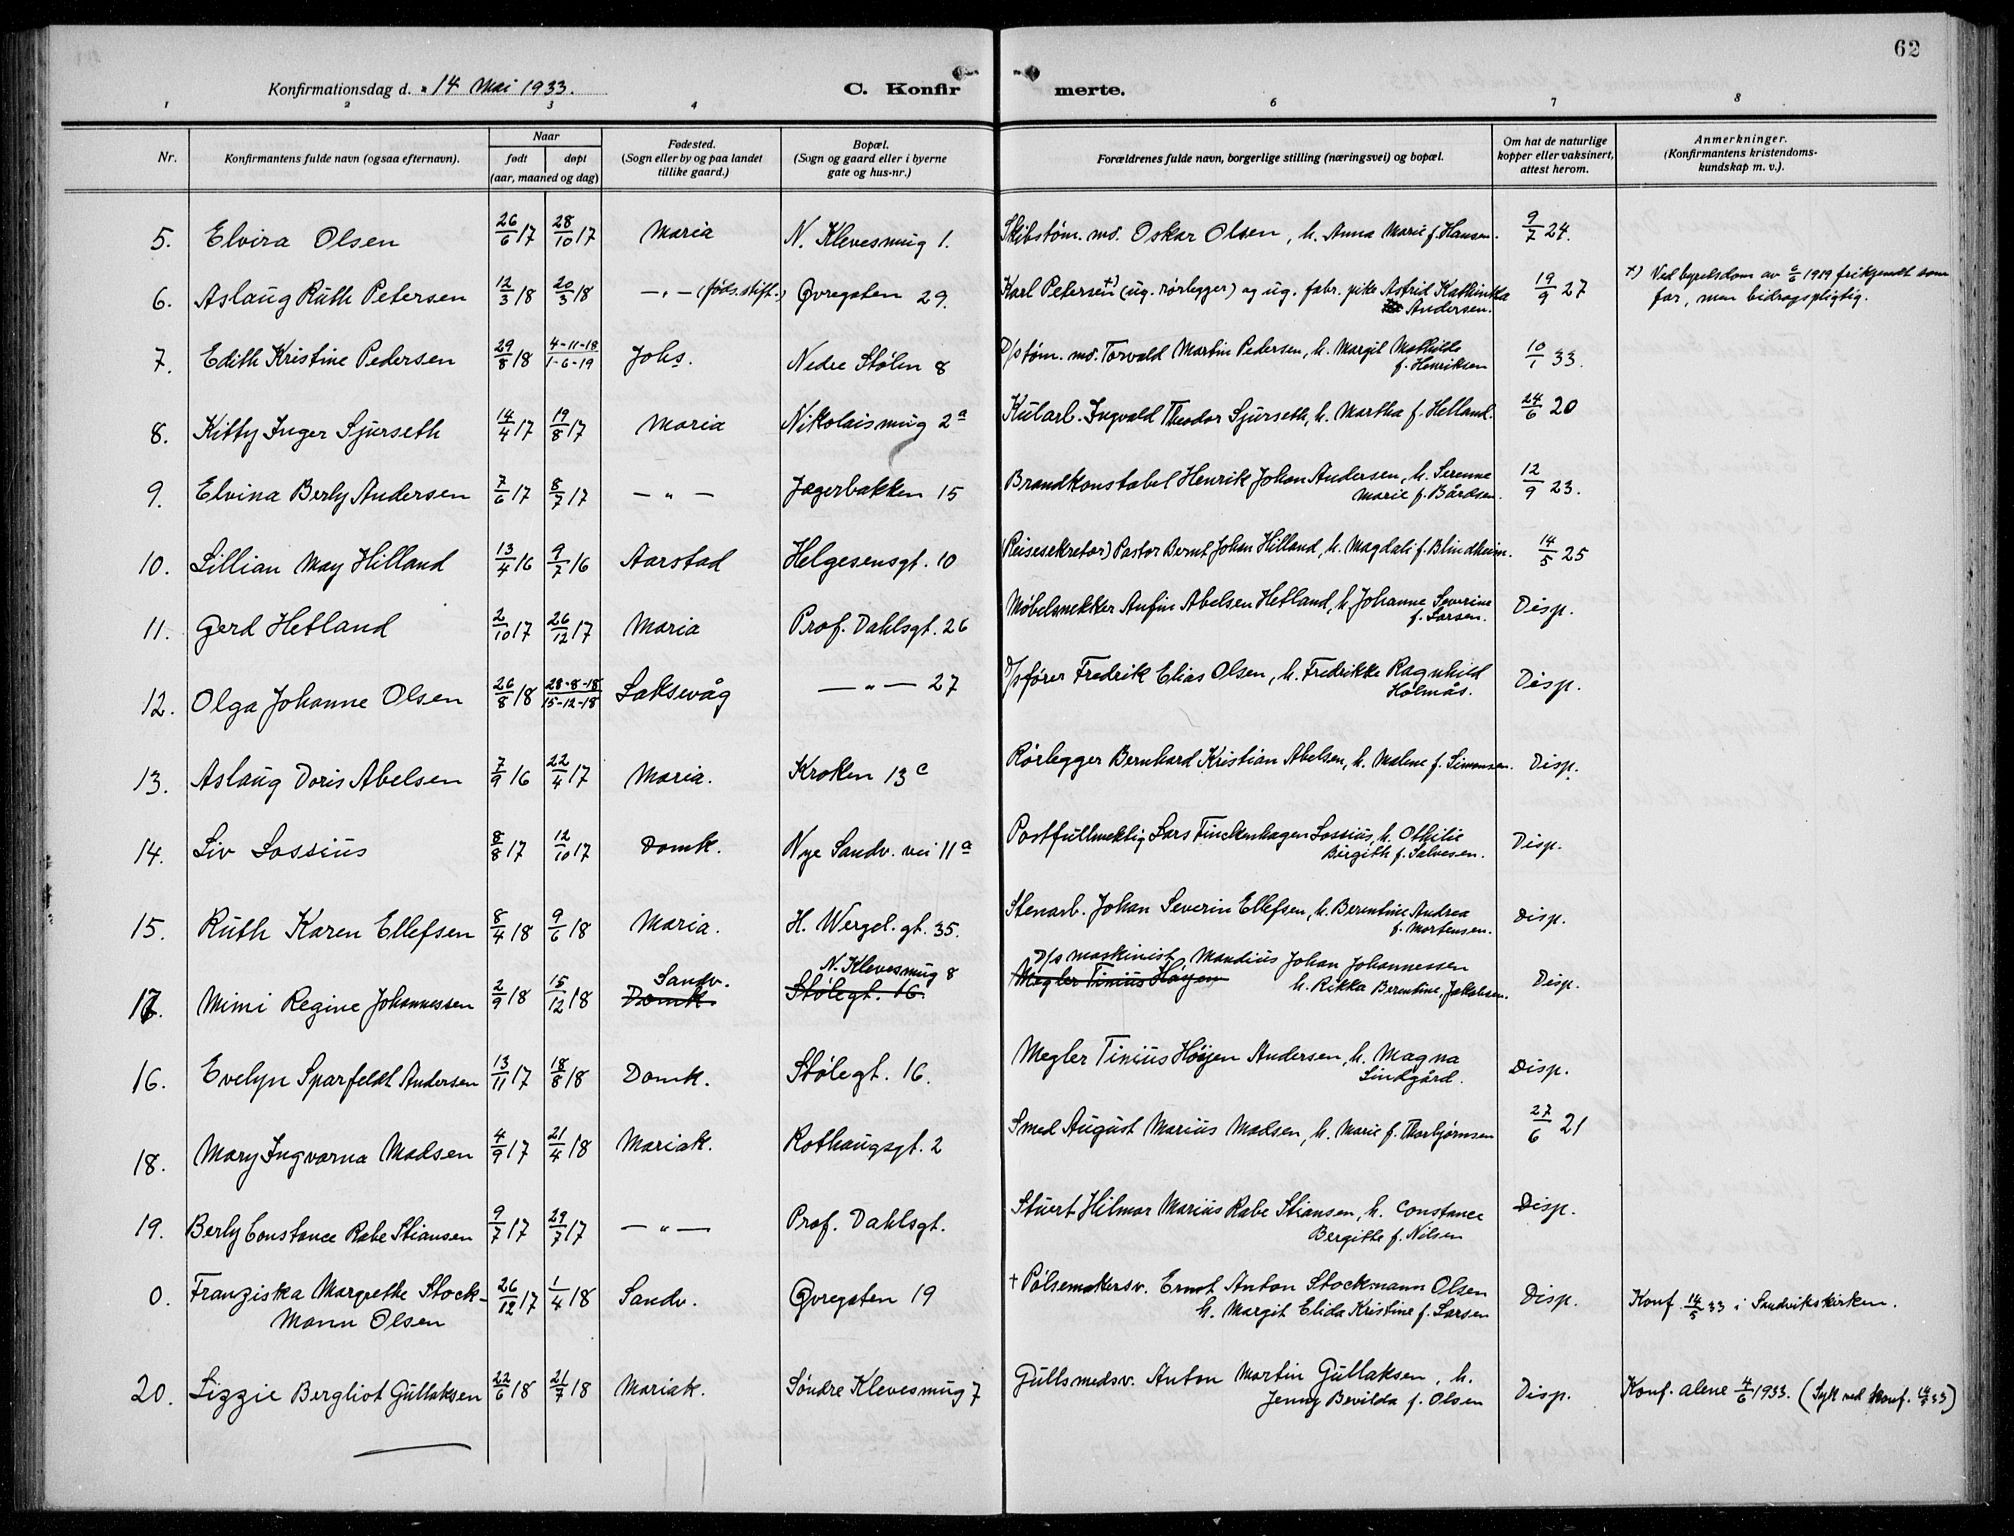 62
Konfirmationsdag d. 14 Mai 1933.
C. Konfir
merte.
1 2 3 4 6 7 8
Nr.
Konfirmantens fulde navn (ogsaa efternavn).
Naar
født døpt
(aar, maaned og dag)
Fødested.
(Sogn eller by og paa landet
tillike gaard.)
Bopæl.
(Sogn og gaard eller i byerne
gate og hus-nr.)
Forældrenes fulde navn, borgerlige stilling (næringsvei) og bopæl.
Om hat de naturlige
kopper eller vaksinert,
attest herom.
Anmerkninger.
(Konfirmantens kristendoms-
kundskap m. v.).
5. Elvira Olsen 26/6 17 28/10 17 Maria N. Klevesmug 1. Skibstøm. ms. Oskar Olsen, h. Anna Marie f. Hansen. 9/7 24.
6. Aslaug Ruth Petersen 12/3 18 20/3 18 — „ — (føds. stift.) Øvregaten 29. Karl Petersen +) (ug. rørlegger) og ug. fabr. pike Astrid Kathinka
Andersen. 19/9 27 +) Ved byretsdom av 6/6 1919 frikjendt som
far, men bidragspligtig.
7. Edith Kristine Pedersen 29/8 18 4-11-18 / 1-6-19 Johs. Nedre Stølen 8 D/s tøm. ms. Torvald Martin Pedersen, h. Margit Mathilde
f. Henriksen 10/1 33.
8. Kitty Inger Sjurseth 14/4 17 19/8 17 Maria Nikolaismug 2a Kularb. Ingvald Theodor Sjurseth, h. Martha f. Helland. 24/6 20
9. Elvina Berly Andersen 7/6 17 8/7 17 — „ — Jægerbakken 15 Brandkonstabel Henrik Johan Andersen, h. Serenne
Marie f. Bårdsen. 12/9 23.
10. Lillian May Hilland 13/4 16 9/7 16 Aarstad Helgesensgt. 10 (Reisesekretær) Pastor Bernt Johan Hilland, h. Magdali f. Blindheim. 14/5 25
11. Gerd Hetland 2/10 17 26/12 17 Maria Prof. Dahlsgt. 26 Møbelsnekker Anfin Abelsen Hetland, h. Johanne Severine
f. Larsen. Disp.
12. Olga Johanne Olsen 26/8 18 28-8-18 / 15-12-18 Laksevåg — „ — 27 D/s fører Fredrik Elias Olsen, h. Fredrikke Ragnhild
Holmås. Disp.
13. Aslaug Doris Abelsen 7/9 16 22/4 17 Maria. Kroken 13c Rørlegger Bernhard Kristian Abelsen, h. Malene f. Simonsen. Disp.
14. Liv Lossius 8/8 17 12/10 17 Domk. Nye Sandv. vei 11a Postfullmektig Lars Finckenhagen Lossius, h. Othilie
Birgith f. Salvesen. Disp.
15. Ruth Karen Ellefsen 8/4 18 9/6 18 Maria. H. Wergel. gt. 35. Stenarb. Johan Severin Ellefsen, h. Berentine Andrea
f. Mortensen. Disp.
17. Mimi Regine Johannessen 2/9 18 15/12 18 Sandv. Domk. N. Klevesmug 8 Stølegt. 16. D/s maskinist Mandius Johan Johannessen
Megler Tinius Høyen h. Rikka Berentine, Jakobsen. Disp.
16. Evelyn Sparfeldt Andersen 13/11 17 18/8 18 Domk. Stølegt. 16. Megler Tinius Høyen Andersen, h. Magna
Lindgård. Disp.
18. Mary Ingvarna Madsen 4/9 17 21/4 18 Mariak. Rothaugsgt. 2 Smed August Marius Madsen, h. Marie f. Thorbjørnsen 27/6 21
19. Berly Constance Rabe Stiansen 9/7 17 29/7 17 — „ — Prof. Dahlsgt. Stuert Hilmar Marius Rabe Stiansen, h. Constance
Bergithe f. Nilsen Disp.
0. Franziska Margrethe Stock-
mann Olsen 26/12 17 1/4 18 Sandv. Øvregaten 19 + Pølsemakersv. Ernst Anton Stockmann Olsen
h. Margit Elida Kristine f. Larsen Disp. Konf. 14/5 33 i Sandvikskirken.
20. Lizzie Bergliot Gullaksen 22/6 18 21/7 18 Mariak. Søndre Klevesmug 7 Gullsmedsv. Anton Martin Gullaksen, h.
Jenny Bevilda f. Olsen Disp. Konf. alene 4/6 1933. (Syk ved konf. 14/5 33)